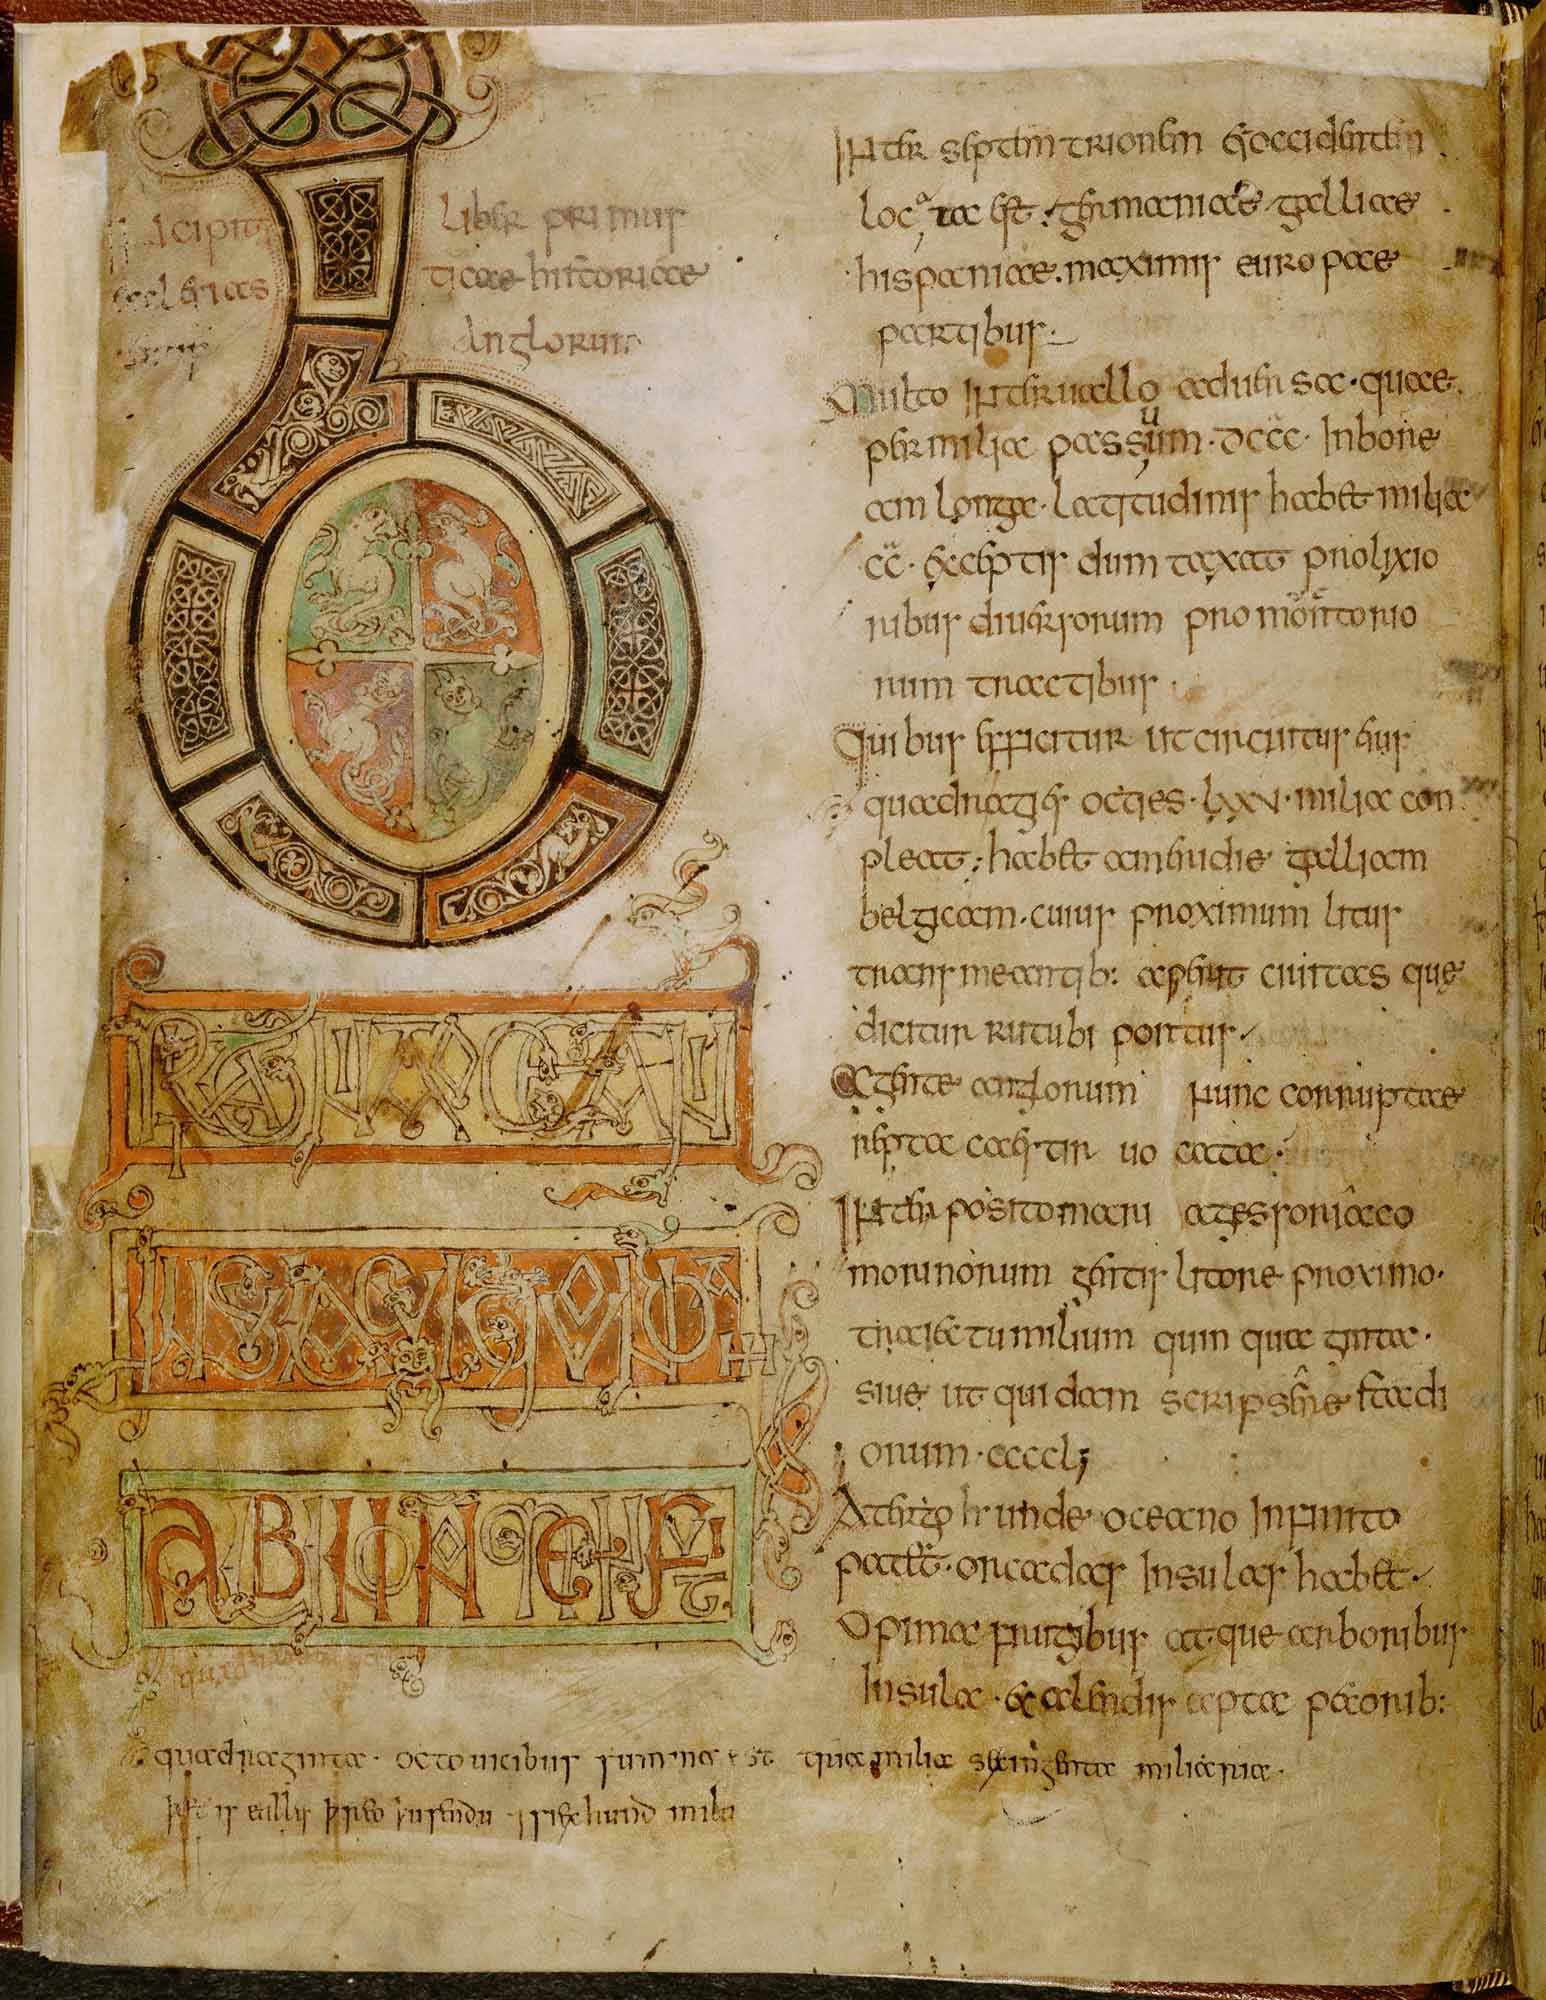 Incipit liber primus
ecclesiasticae historiae
gentis anglorum
BRITTANIA OCEANI
INSULA CUI QUONDAM
ALBION NOMEN FUIT
Inter septemtrionem et occidentem
locata est. germaniae galliae
hispaniae. maximis europae
partibus.
Multo interuallo aduersa. quae
per milia passuum. dccc. In bore
am longa. latitudinis habet milia
cc. exceptis dum taxat prolixio
ribus diuersorum promontorio
rum tractibus.
Quibus efficitur ut circuitus eius
quadragies octies. lxxv. milia con
pleat; habet a meridie galliam
belgicam. cuius proximum litus
transmeantib: aperit ciuitas que
dicitur rutubi portus.
A gente anglorum nunc corruptae
reptacaestir uocata.
Interposito mari a gessoriaco
morinorum gentis litore proximo.
traiectu milium quinquaginta.
siue ut quidam scripsere stadi
orum. ccccl;
A tergo unde oceano Infinito
patet. orcadas Insulas habet.
Opima frugibus atque arboribus
Insula. et alendis apta pecorib:
quadraginta. octo uicibus summa est tria milia sexingenta miliaria.
þæt is eallis þreo þusendu 7 siex hund mila